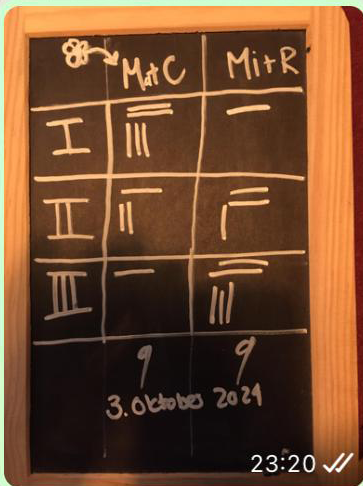 M+C Mi+R
I
II
III
9 9
3. Oktober 2024
23:20